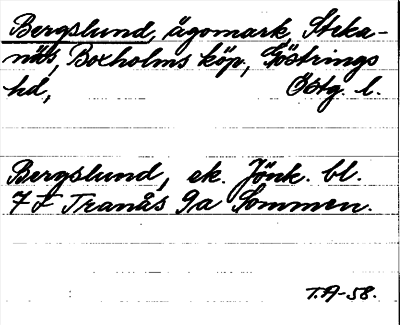 Bergslund, ägomark, Steka-
näs, Boxholms köp, Göstrings
hd, Östg. l.
Bergslund, ek. Jönk. bl.
7 f Tranås 9a Sommen.
T.A-58.